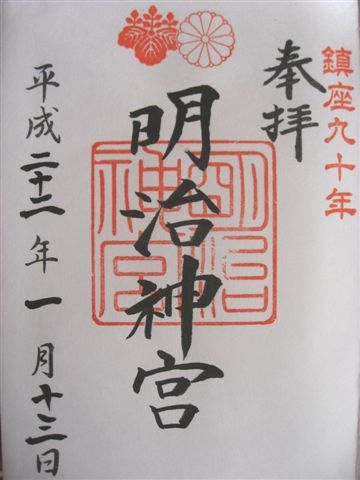 鎮座九十年
奉拝
明治神宮
明治神宮
平成二十二年一月十三日